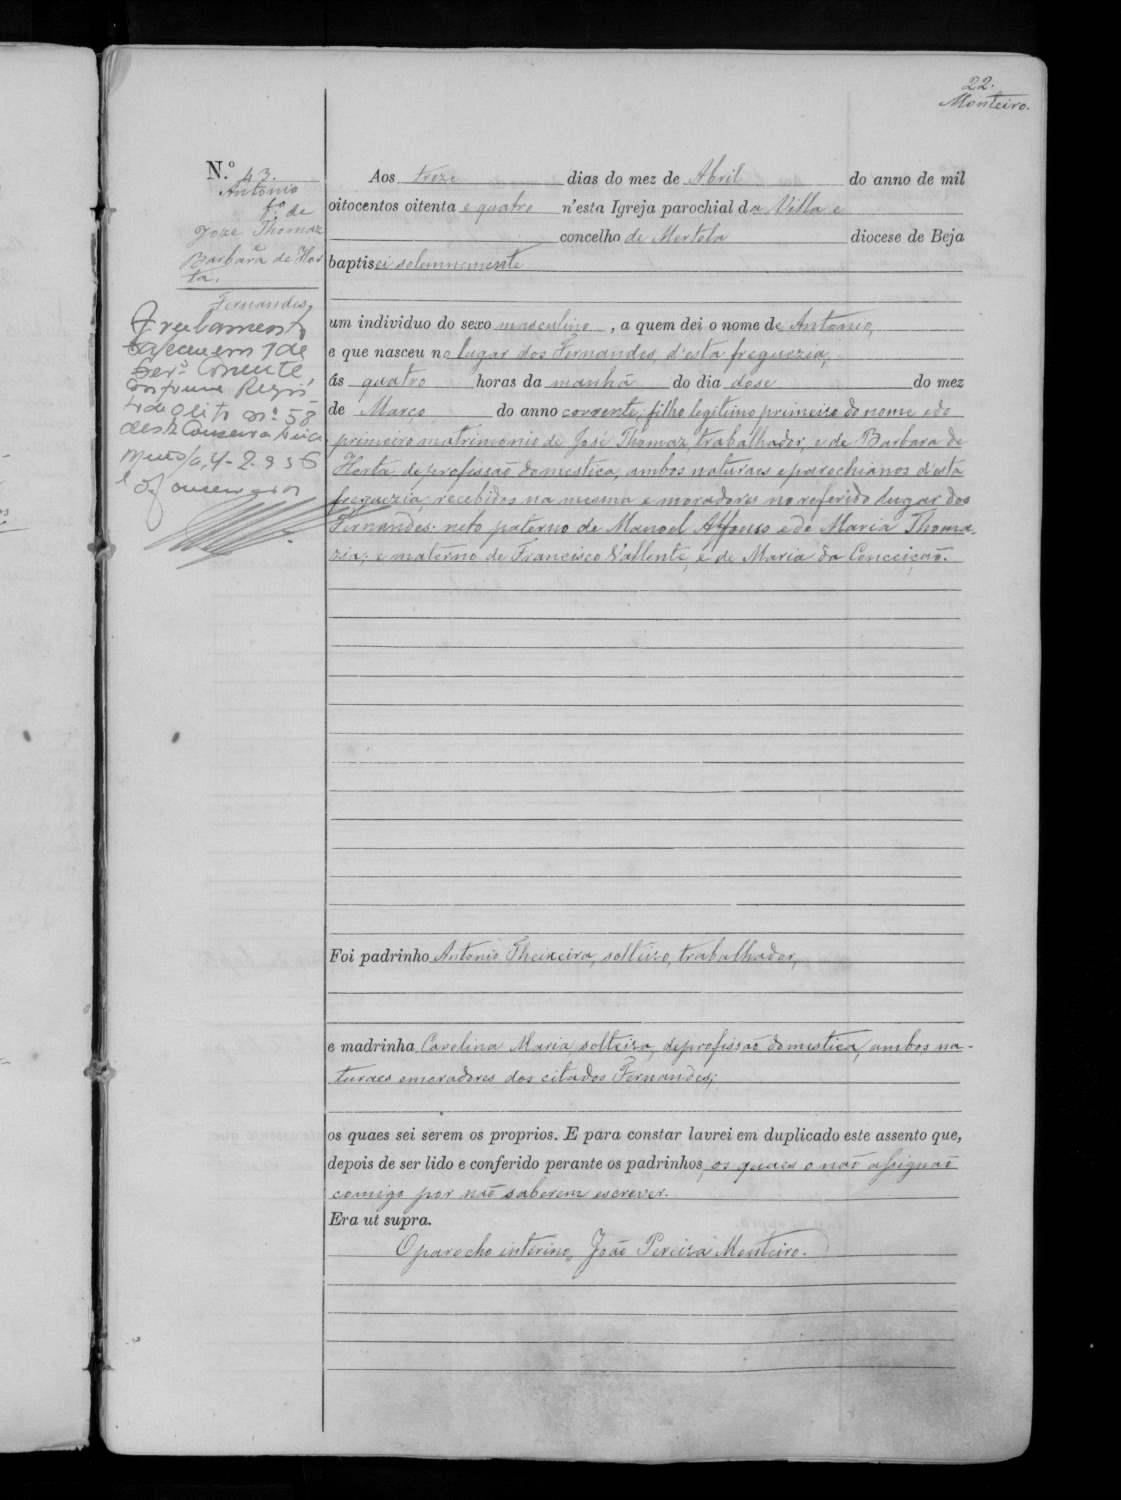 22.
Monteiro.
N.º 43.
Antonio
fº de
Joze Thomaz
Barbara de Hor
ta.
Fernandes,
Aos treze dias do mez de Abril do anno de mil
oitocentos oitenta e quatro n'esta Igreja parochial da Villa e
concelho de Mertola diocese de Beja
baptisei solemnemente
um individuo do sexo masculino, a quem dei o nome de Antonio,
e que nasceu no lugar dos Fernandes, d'esta freguezia,
ás quatro horas da manhã do dia dose do mez
de Março do anno corrente, filho legitimo primeiro do nome e do
primeiro matrimonio de José Thomaz, trabalhador, e de Barbara de
Horta de profissaõ domestica, ambos naturaes e parochianos d'esta
freguezia, recebidos na mesma e moradores no referido lugar dos
Fernandes: neto paterno de Manoel Affonso e de Maria Thoma-
zia; e materno de Francisco Vallente, e de Maria da Conceiçaõ.
Faleceu em 7 de
conforme Regis
to de obito nº 58
desta Conserva
4-2-956
O Conservador
Foi padrinho Antonio Theixeira, solteiro, trabalhador,
e madrinha Carolina Maria, solteira, de profissaõ domestica, ambos na-
turaes e moradores dos citados Fernandes;
os quaes sei serem os proprios. E para constar lavrei em duplicado este assento que,
depois de ser lido e conferido perante os padrinhos, os quaes o naõ assignaõ
comigo por naõ saberem escrever.
Era ut supra.
O parocho interino, João Pereira Monteiro.